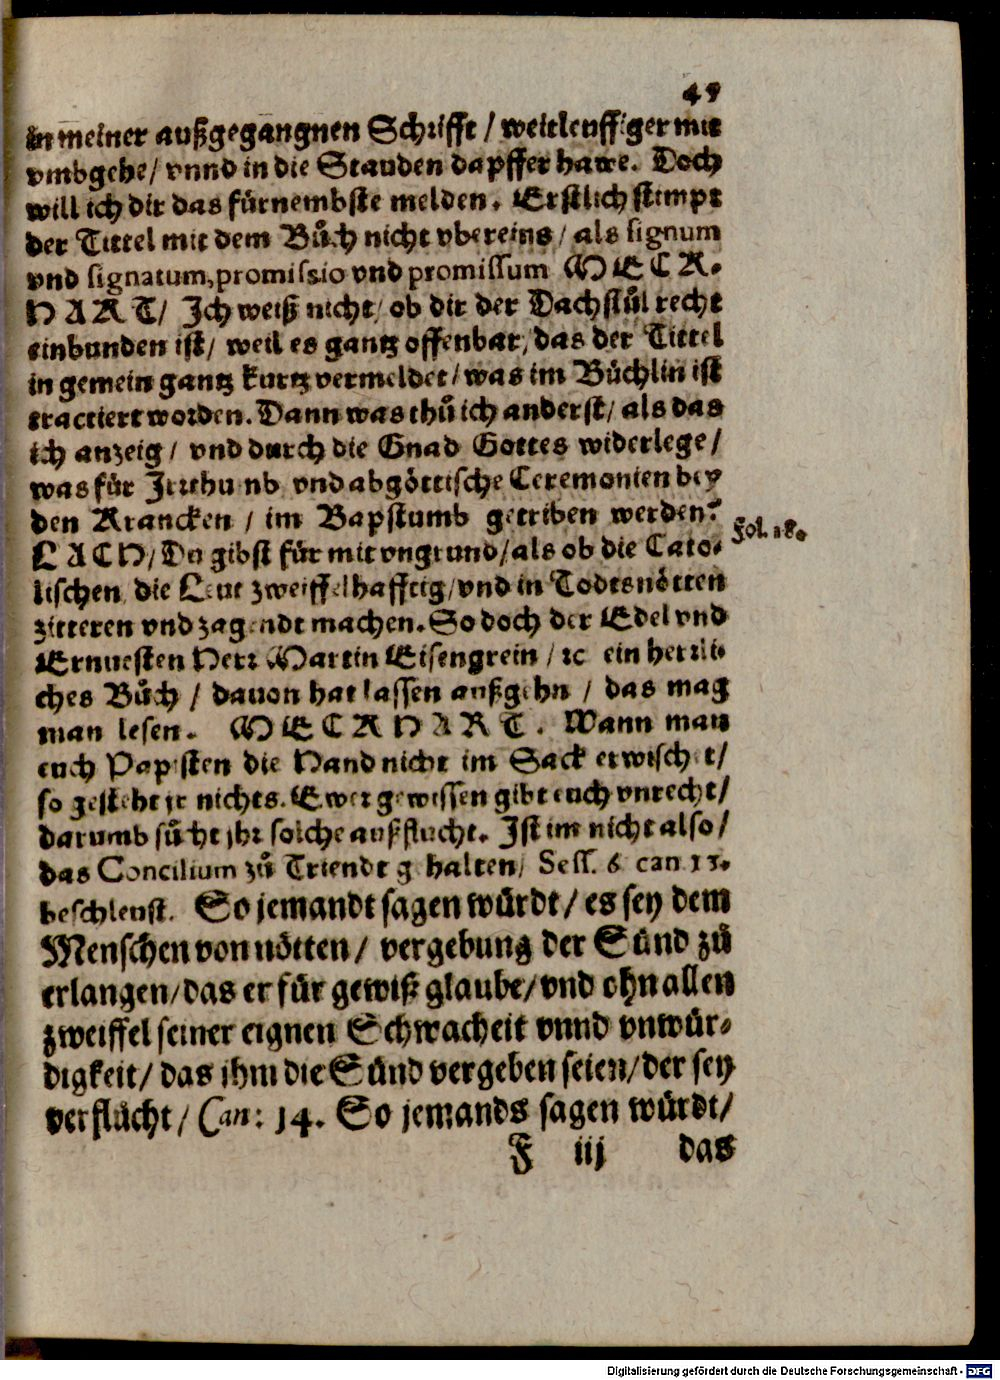 45
in meiner außgegangnen Schrifft / weitleuffiger mit
vmbgehe / vnnd in die Stauden dapffer hawe. Doch
will ich dir das fürnembste melden. Erstlich stimpt
der Tittel mit dem Bůch nicht vbereins / als signum
vnd signatum, promissio vnd promissum MECK-
HART / Ich weiß nicht / ob dir der Dachstůl recht
einbunden ist / weil es gantz offenbar, das der Tittel
in gemein gantz kurtz vermeldet / was im Büchlin ist
tractiert worden. Dann was thů ich anderst / als das
ich anzeig / vnd durch die Gnad Gottes widerlege /
was für Irrthumb vnd abgöttische Ceremonien bey
den Krancken / im Bapstumb getriben werden?
LACH / Du gibst für mit vngrund / als ob die Cato-
lischen die Leut zweiffelhafftig / vnd in Todtsnötten
zitteren vnd zagendt machen. So doch der Edel vnd
Ernuesten Herr Martin Eisengrein / ꝛc ein herrli-
ches Bůch / dauon hat lassen außgehn / das mag
man lesen. MECKHART. Wann man
euch Papisten die Hand nicht im Sack erwischet /
so gesteht jr nichts. Ewer gewissen gibt euch vnrecht /
darumb sůcht jhr solche außflucht. Ist im nicht also /
das Concilium zů Triendt gehalten / Sess. 6 can 13.
beschleust. So jemandt sagen würdt / es sey dem
Menschen von nötten / vergebung der Sünd zů
erlangen / das er für gewiß glaube / vnd ohn allen
zweiffel seiner eignen Schwacheit vnnd vnwür-
digkeit / das jhm die Sünd vergeben seien / der sey
verflůcht / Can: 14. So jemands sagen würdt /
F iij das
Fol. 18.
Digitalisierung gefördert durch die Deutsche Forschungsgemeinschaft - DFG